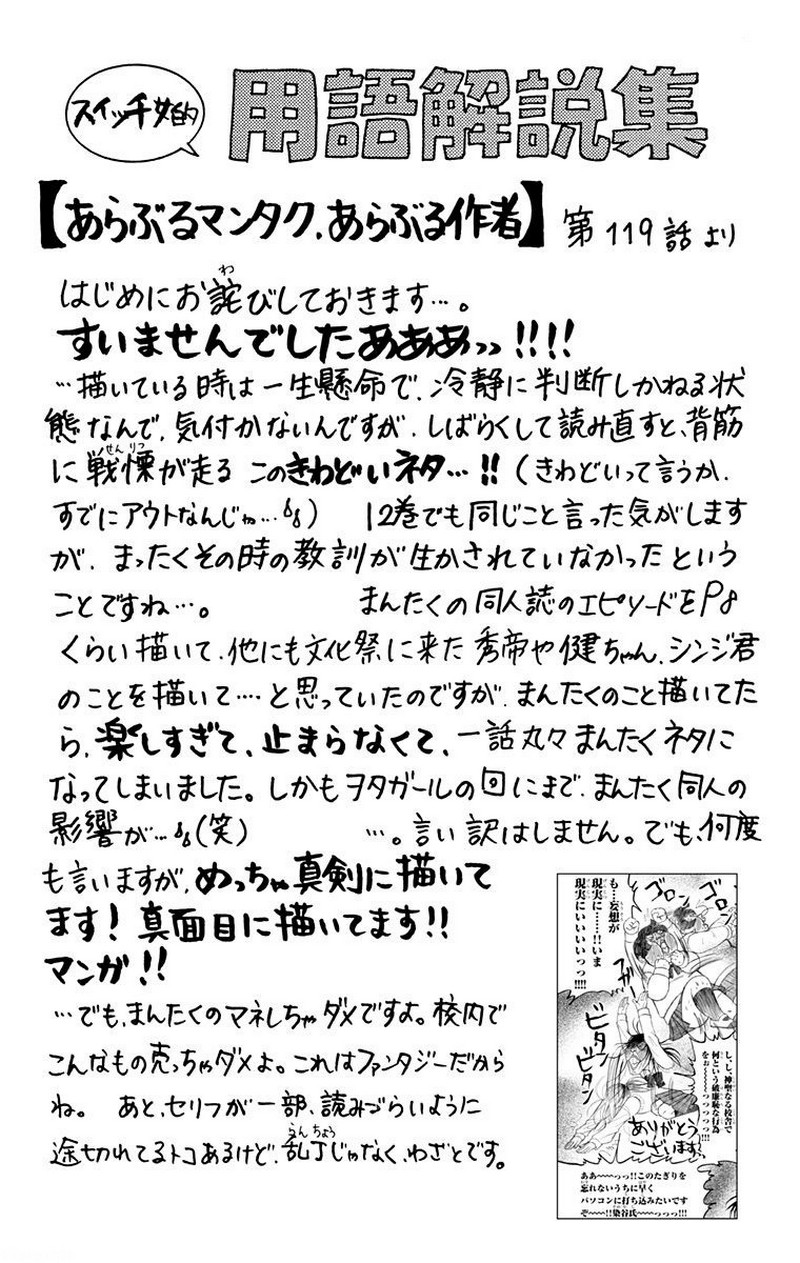 スイッチ女的
用語解説集
【あらぶるマンタク、あらぶる作者】 第119話より
はじめにお詫びしておきます…。
すいませんでしたあああっっ!!!!
…描いている時は一生懸命で、冷静に判断しかねる状
態なんで、気付かないんですが、しばらくして読み直すと、背筋
に戦慄が走る このきわどいネタ…!!(きわどいって言うか、
すでにアウトなんじゃ…) 12巻でも同じこと言った気がします
が、まったくその時の教訓が生かされていなかったという
ことですね…。 まんたくの同人誌のエピソードをP8
くらい描いて、他にも文化祭に来た秀帝や健ちゃん、シンジ君
のことを描いて…と思っていたのですが、まんたくのこと描いてた
ら、楽しすぎて、止まらなくて、一話丸々まんたくネタに
なってしまいました。しかもヲタガールの回にまで、まんたく同人の
影響が…(笑) …。言い訳はしません。でも、何度
も言いますが、めっちゃ真剣に描いて
ます!真面目に描いてます!!
マンガ!!
…でも、まんたくのマネしちゃダメですよ。校内で
こんなもの売っちゃダメよ。これはファンタジーだから
ね。 あと、セリフが一部、読みづらいように
途切れてるトコあるけど、乱丁じゃなく、わざとです。
も…妄想が
現実に……!!いま
現実にいいいいっっ!!!!
ゴロン
ゴロン
フガー
ビタン
ビタン
し、し、神聖なる校舎で
何という破廉恥な行為
をぉ〜〜〜〜っっっっっ!!!
ありがとう
ございます
ああ〜〜〜っっ!!このたぎりを
忘れないうちに早く
パソコンに打ち込みたいです
ぞ〜〜!!染谷氏〜〜〜っっっ!!!